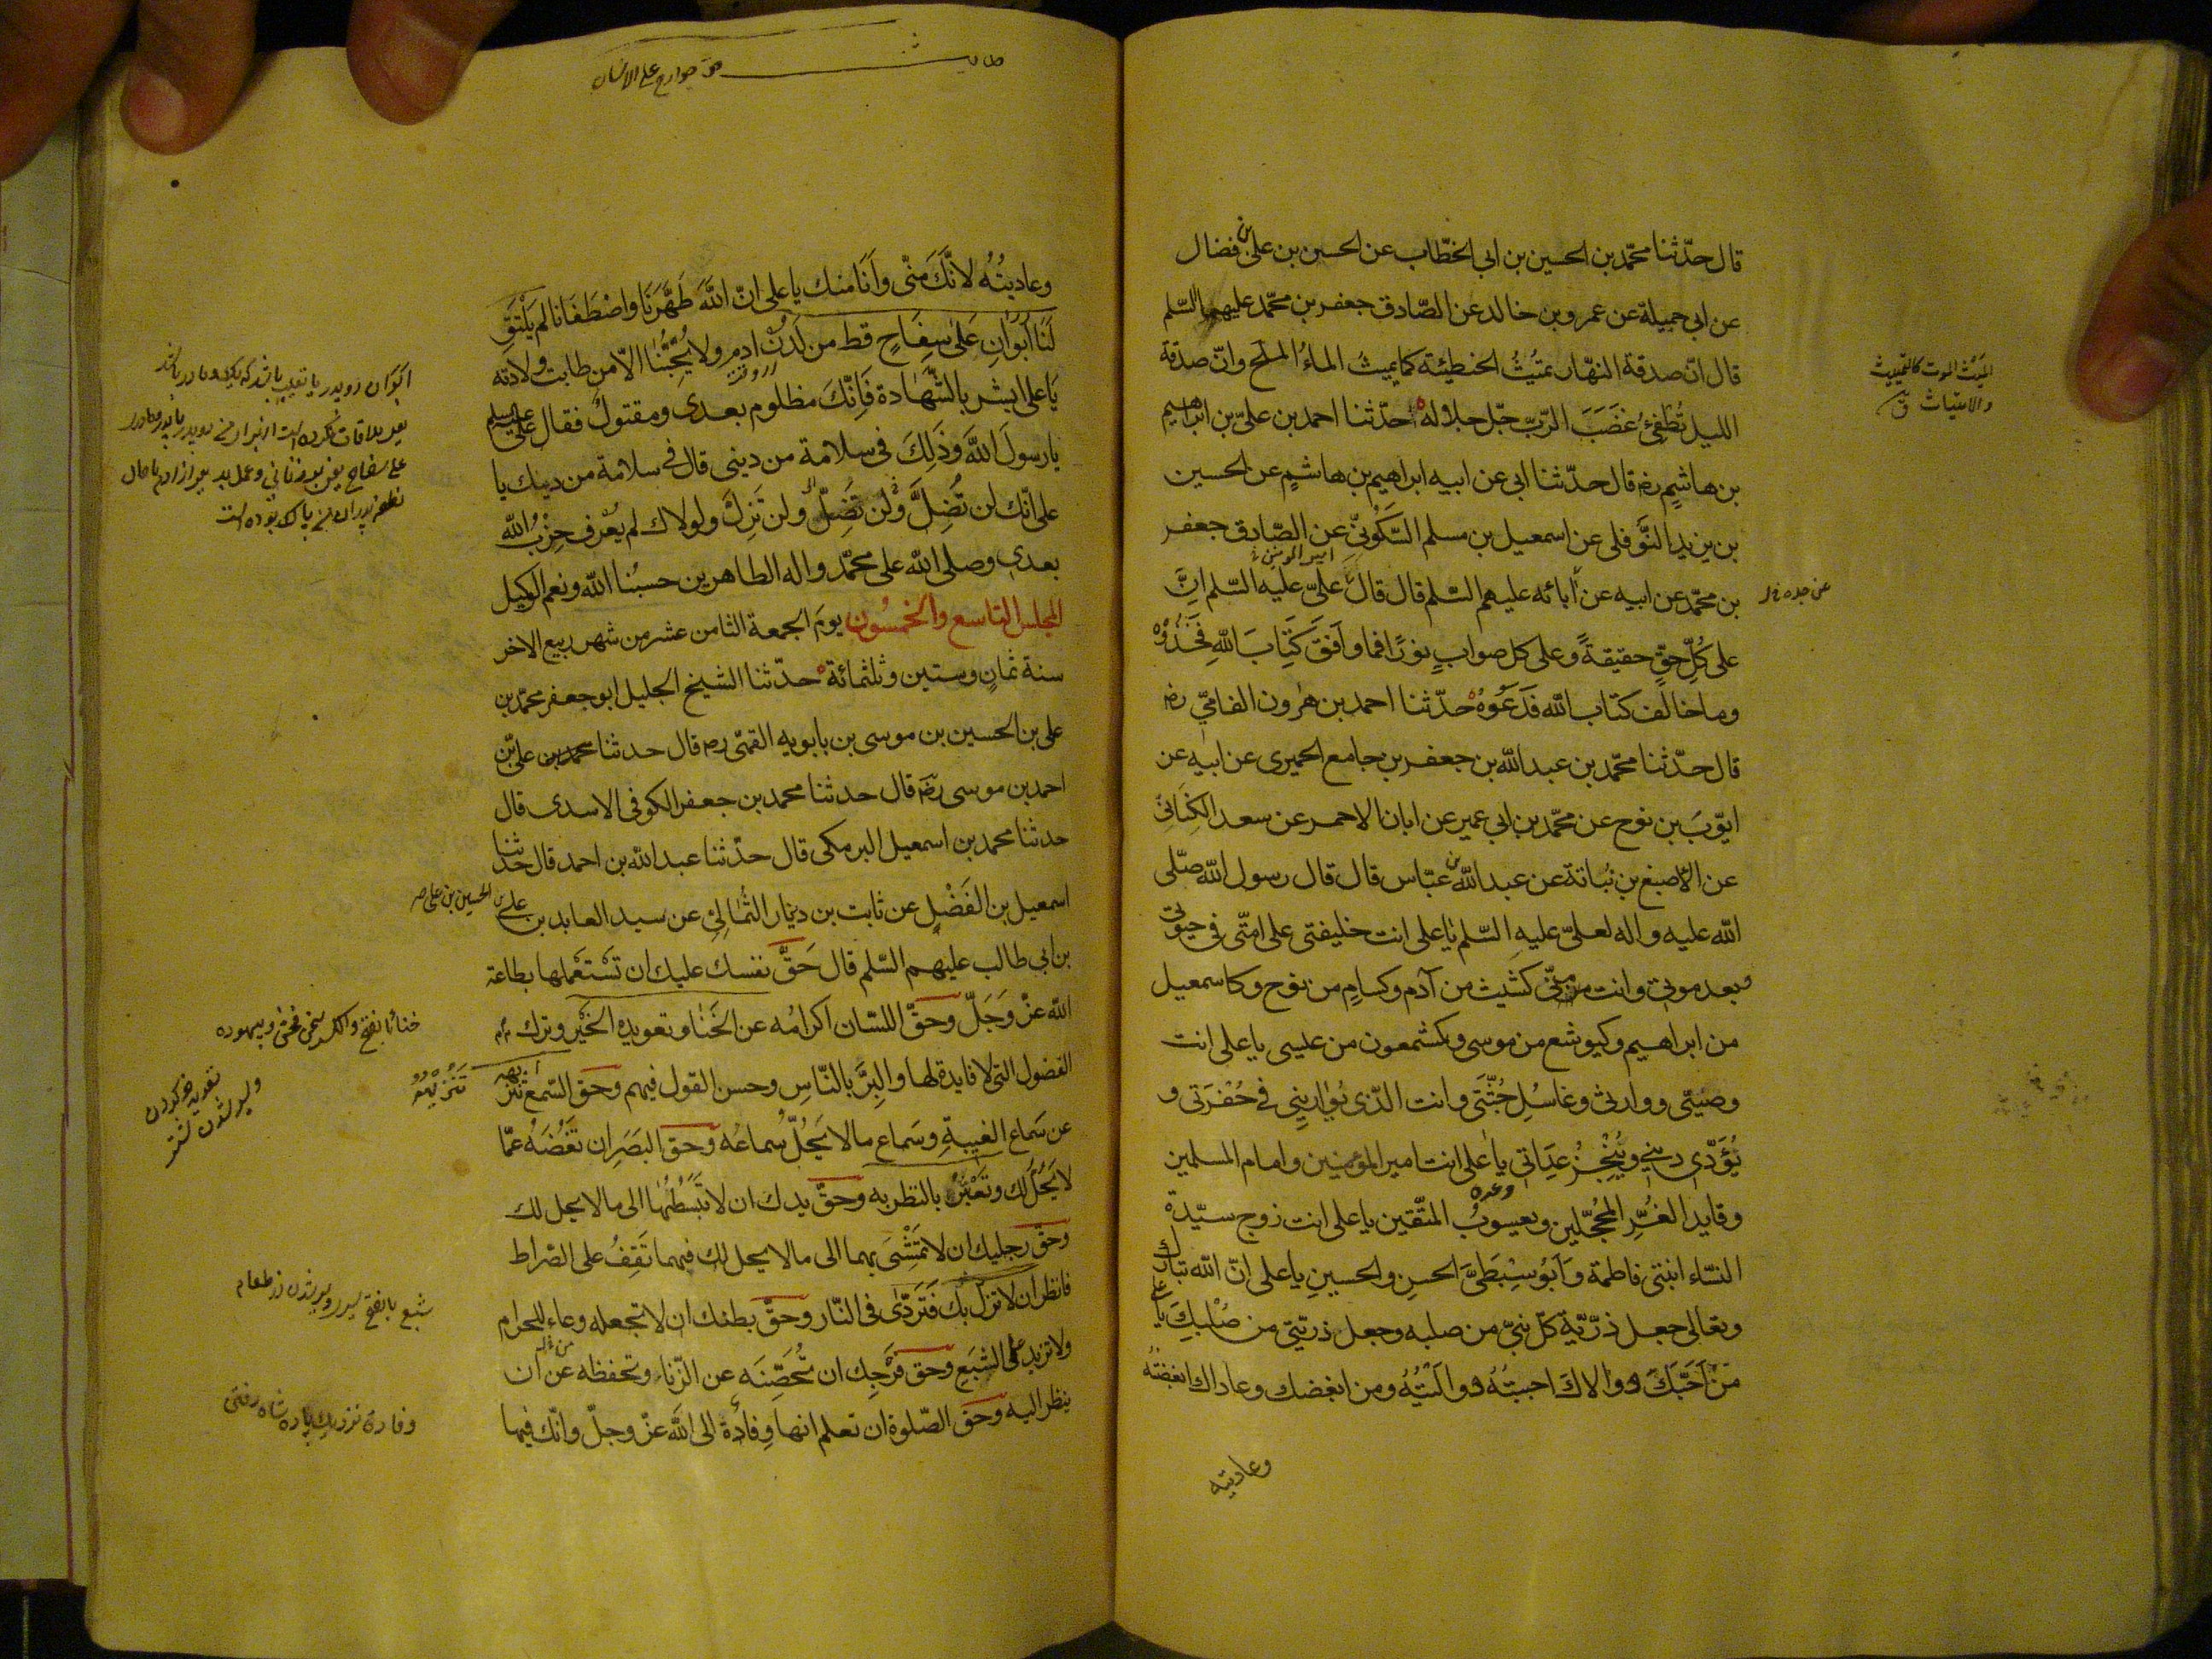 قال حدّثنا محمّد بن الحسين بن ابى الخطّاب عن الحسين بن على بن فضال
عن ابى جميلة عن عمرو بن خالد عن الصّادق جعفر بن محمّد عليهما السّلم
قال انّ صدقة النهّار تميثُ الخطيئة كما يميثُ الماءُ الملح وانّ صدقة
الليل تُطفئ غضَبَ الربّ جلّ جلاله حدّثنا احمد بن علىّ بن ابراهيم
بن هاشم رض قال حدّثنا ابى عن ابيه ابراهيم بن هاشمٍ عن الحسين
بن يزيد النَّوفلى عن اسمعيل بن مسلم السَّكُونىّ عن الصّادق جعفر
بن محمّد عن ابيه عن آبائه عليهم السّلم قال قال علىّ عليه السّلم انَّ
امير المومنين
عن جده
على كُلِّ حقٍّ حقيقةً وعلى كل صوابٍ نورًا فما وافَقَ كِتابَ اللّهِ فَخُذُوْهُ
وما خالف كتاب اللّه فَدَعُوْهُ حدّثنا احمد بن هٰرون الفامىّ رض
قال حدّثنا محمّد بن عبد اللّه بن جعفر بن جامع الحميرى عن ابيه عن
ايّوبَ بن نوح عن محمّد بن ابى عمير عن ابان الاحمر عن سعد الكِنَانىّ
عن الاصبغ بن نُباتة عن عبد اللّه بن عبّاس قال قال رسول اللّه صلّى
اللّه عليه واله لعلىّ عليه السّلم يا على انت خليفتى على امّتى فى حيوتى
وبعد موتى وانت منّى كشيث من آدم وكسامٍ من نوح وكاسمعيل
من ابراهيم وكيوشع من موسى وكشمعون من عيسى يا على انت
وصيّى ووارثى وغاسُلِ جُثّتى وانت الّذى يُوارينِى فى حُفْرَتى و
يُؤَدّى دينى ويُنْجِزُ عِدَاتى يا على انت امير المؤمنين وامام المسلمين
وقايد الغُرِّ المُحجّلين ويعسوبُ المتّقين يا على انت زوج سيّدة
النّساء ابنتى فاطمة وَاَبُو سِبْطَىَّ الحسنِ والحسينِ يا على انّ اللّه تبارك
وتعالى جعل ذرّيّة كلّ نبىّ من صلبه وجعل ذريّتى من صُلْبِكَ يا على
مَنْ اَحَبَّكَ ووالاكَ احببتُهُ ووالَيْتُهُ ومن ابغضك وعاداك ابغضتُهُ
وعاديته
الميث الموت كالتمييث
والامتياث ق
حق جوارح على الانسان
وعاديتُهُ لانَّكَ منّى وَاَنَا منك يا على انّ اللّهَ طَهَّرَنَا واصْطَفَانا لم يَلْتَقِ
لَنا اَبَوَانِ عَلىٰ سِفَاحٍ قط من لَدُنْ ادم ولا يُحِبُّنا الّا من طابت ولادته
يَا على ابشر بالشّهادة فَاِنّكَ مظلوم بعدى ومقتولٌ فقال على عليه السلم
يا رسولَ اللّهَ وَذٰلِكَ فى سلامة من دينى قال فى سلامة من دينك يا
على انّك لن تُضِلَّ وَلن تَضِلّ ولن تَزِلَّ ولولاك لم يُعْرف حِزْبُ اللّه
بعدى وصلى اللّه على محمّد واله الطاهرين حسبُنا اللّه ونعم الوكيل
المجلس التاسع والخمسُون يومَ الجمعة الثامن عشر من شهر ربيع الاخر
سنة ثمانٍ وستين وثلثمائة حدّثنا الشيخ الجليل ابو جعفر محمّد بن
على بن الحسين بن موسى بن بابويه القمّى ره قال حدثنا محمد بن علىّ بن
احمد بن موسى رض قال حدثنا محمد بن جعفر الكوفى الاسدى قال
حدثنا محمد بن اسمعيل البرمكى قال حدّثنا عبد اللّه بن احمد قال حدّثنا
اسمعيل بن الفَضْلِ عن ثابت بن دينار الثُمالِىّ عن سيد العابدين على بن الحسين بن على
بن ابى طالب عليهم السّلم قال حَقُّ نفسك عليك ان تَسْتَعْملها بطاعة
اللّه عزّ وَجَلّ وحقّ اللسّان اكرامُه عن الخَنا وتعويده الخَيْر وترك
الفضول التى لا فايدة لها والبِرَّ بالنّاسِ وحسن القول فيهم وحق السّمع تنز
تَنْزِيْهُهُ
عن سَماع الغيبةِ وسَماع ما لا يَحِلّ سُماعُه وحق البَصَرِ ان تَغُضَهُ عمّا
لا يَحِلُّ لك وتَعْتَبِرُ بالنظر به وحقّ يدك ان لا تَبْسُطَهُا الى ما لا يحل لك
وحقّ رجليك ان لا تَمْشْىَ بهما الى ما لا يحل لك فبهما تَقِفُ على الصّراط
فانظر ان لا تزلّ بك فَتَردّىٰ فى النّار وحقّ بطنك ان لا تجعله وعاء للحرام
ولا تزيد على الشبَع وحق فَرْجِك ان تُحَصِّنَه عن الزّناء وتحفظه عن ان
ينظر اليه وحق الصّلوة ان تعلم انها وِفادَة الى اللّه عزّ وجلّ وانّك فيها